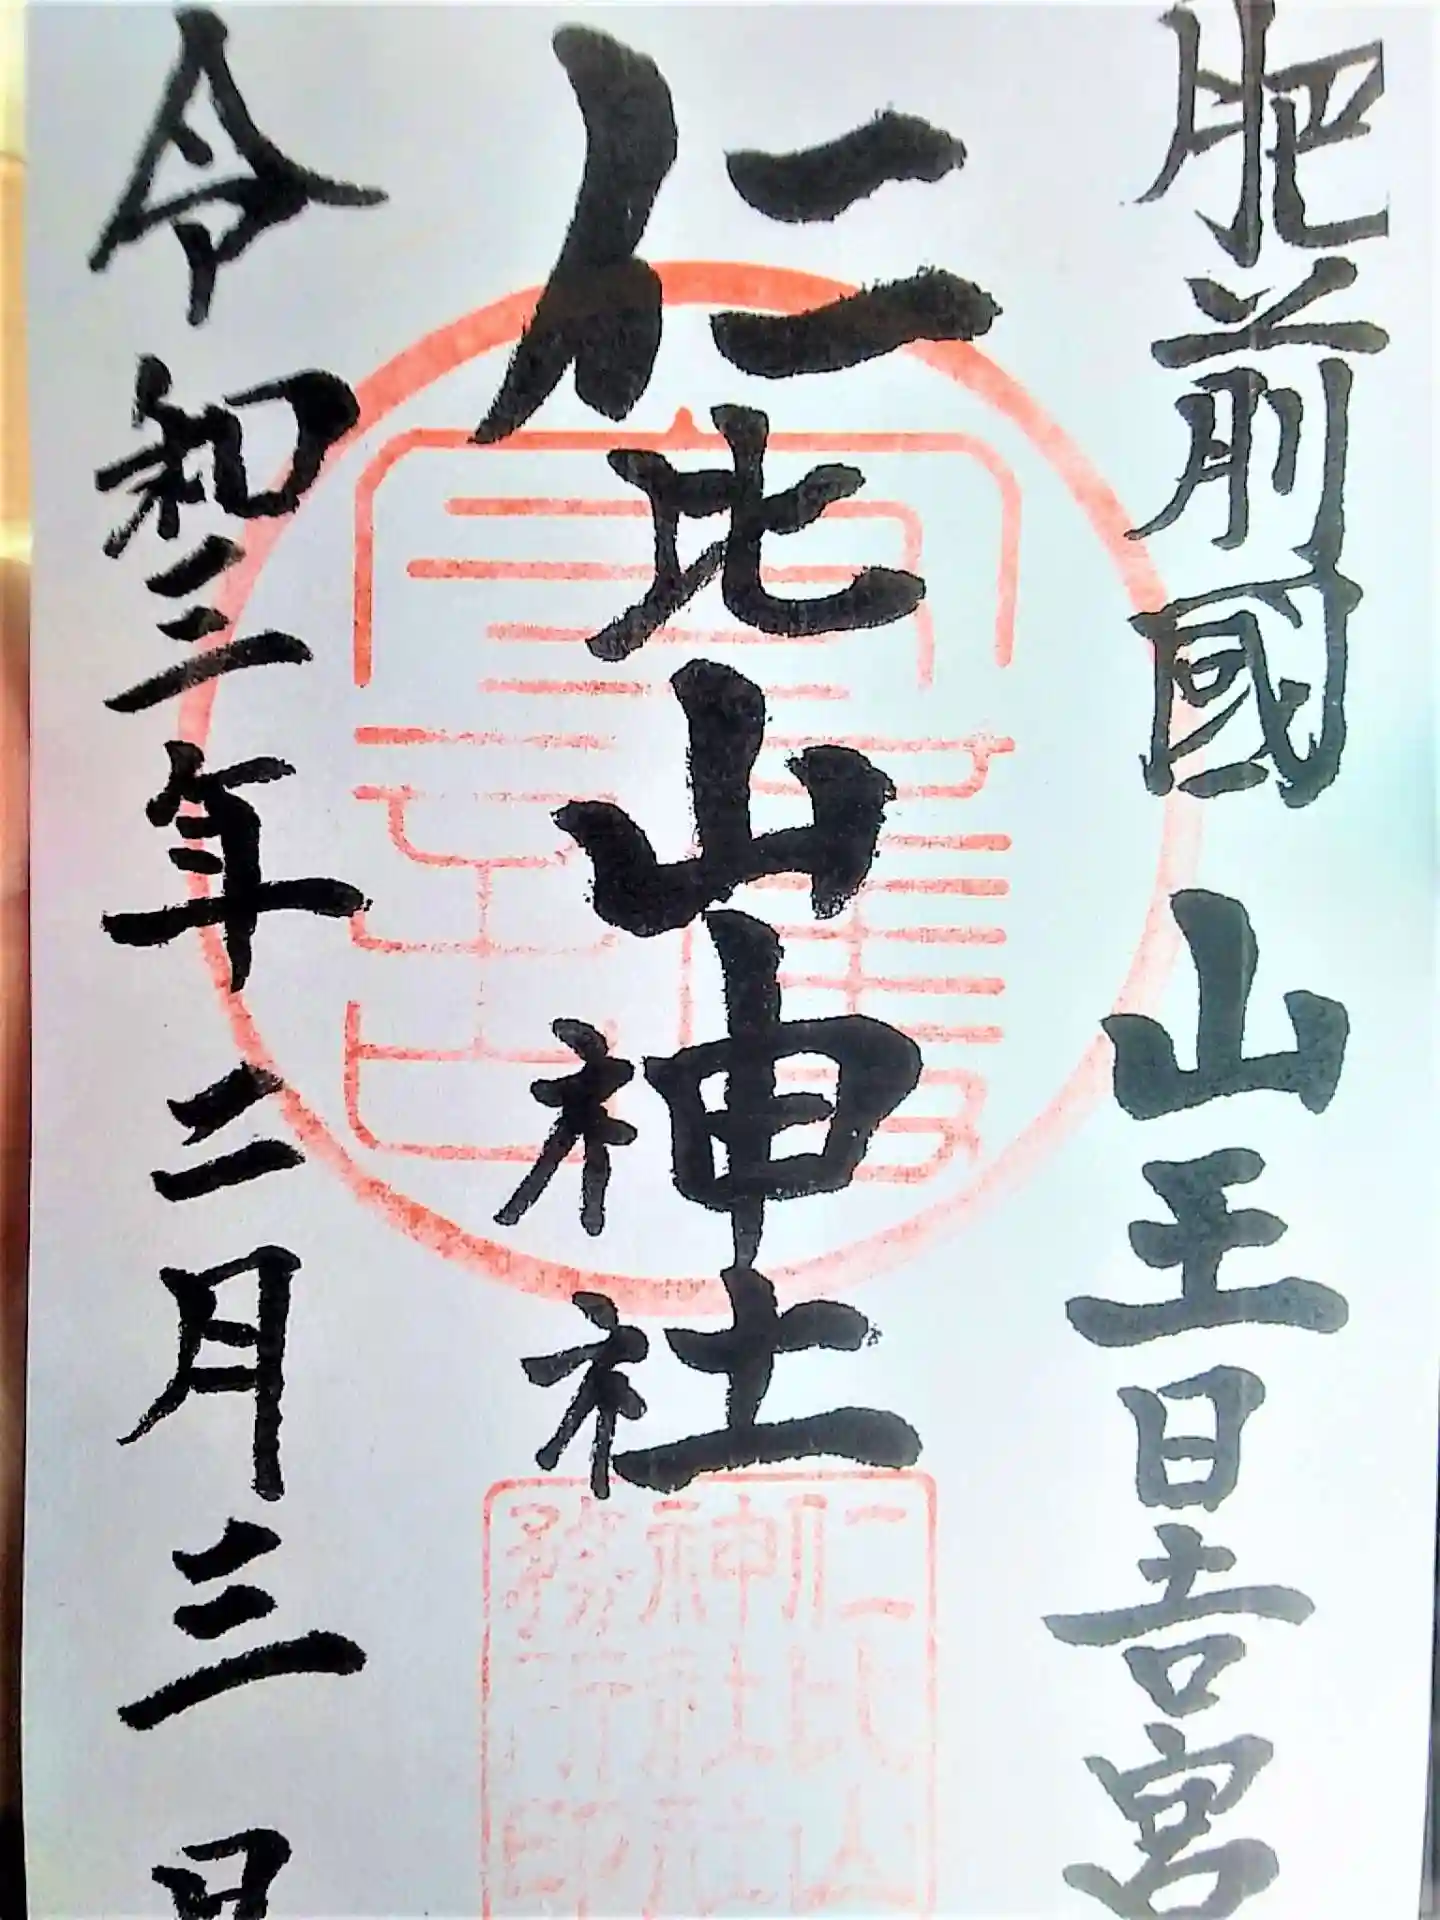 肥前國 山王日吉宮
仁比山神社
仁比山
神社社
務所印
令和三年二月三日